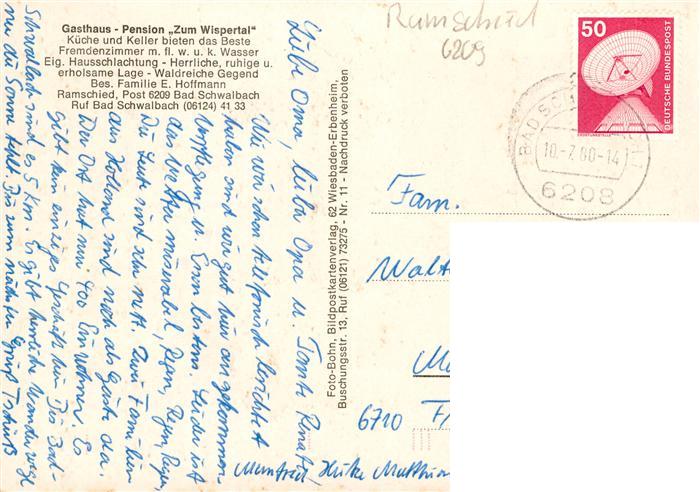 Gasthaus - Pension „Zum Wispertal"
Küche und Keller bieten das Beste
Fremdenzimmer m. fl. w. u. k. Wasser
Eig. Hausschlachtung - Herrliche, ruhige u.
erholsame Lage - Waldreiche Gegend
Bes. Familie E. Hoffmann
Ramschied, Post 6209 Bad Schwalbach
Ruf Bad Schwalbach (06124) 41 33
Ramschied
6209
50
DEUTSCHE BUNDESPOST
BAD SCHWALBACH
10.-7.80-14
6208
Foto-Bohn, Bildpostkartenverlag, 62 Wiesbaden-Erbenheim,
Buschungsstr. 13, Ruf (06121) 73275 - Nr. 11 - Nachdruck verboten
Liebe Oma, lieber Opa u. Tante Renate,
Wie wir schon telefonisch berichtet
haben sind wir gut hier angekommen.
Verpflegung u. Essen bestens. Leider ist
das Wetter miserabel, Regen, Regen, Regen,
Die Leute sind sehr nett. Zwei Familien
aus Holland sind noch als Gäste da.
Der Ort hat nur 400 Einwohner. Es
gibt kein einziges Geschäft hier. Bis Bad-
Schwalbach sind es 5 Km. Es gibt herrliche Wanderwege
nur die Sonne fehlt. Bis zum nächsten Gruß Tschüß
Manfred, Heike
Fam.
Walt
6710 F